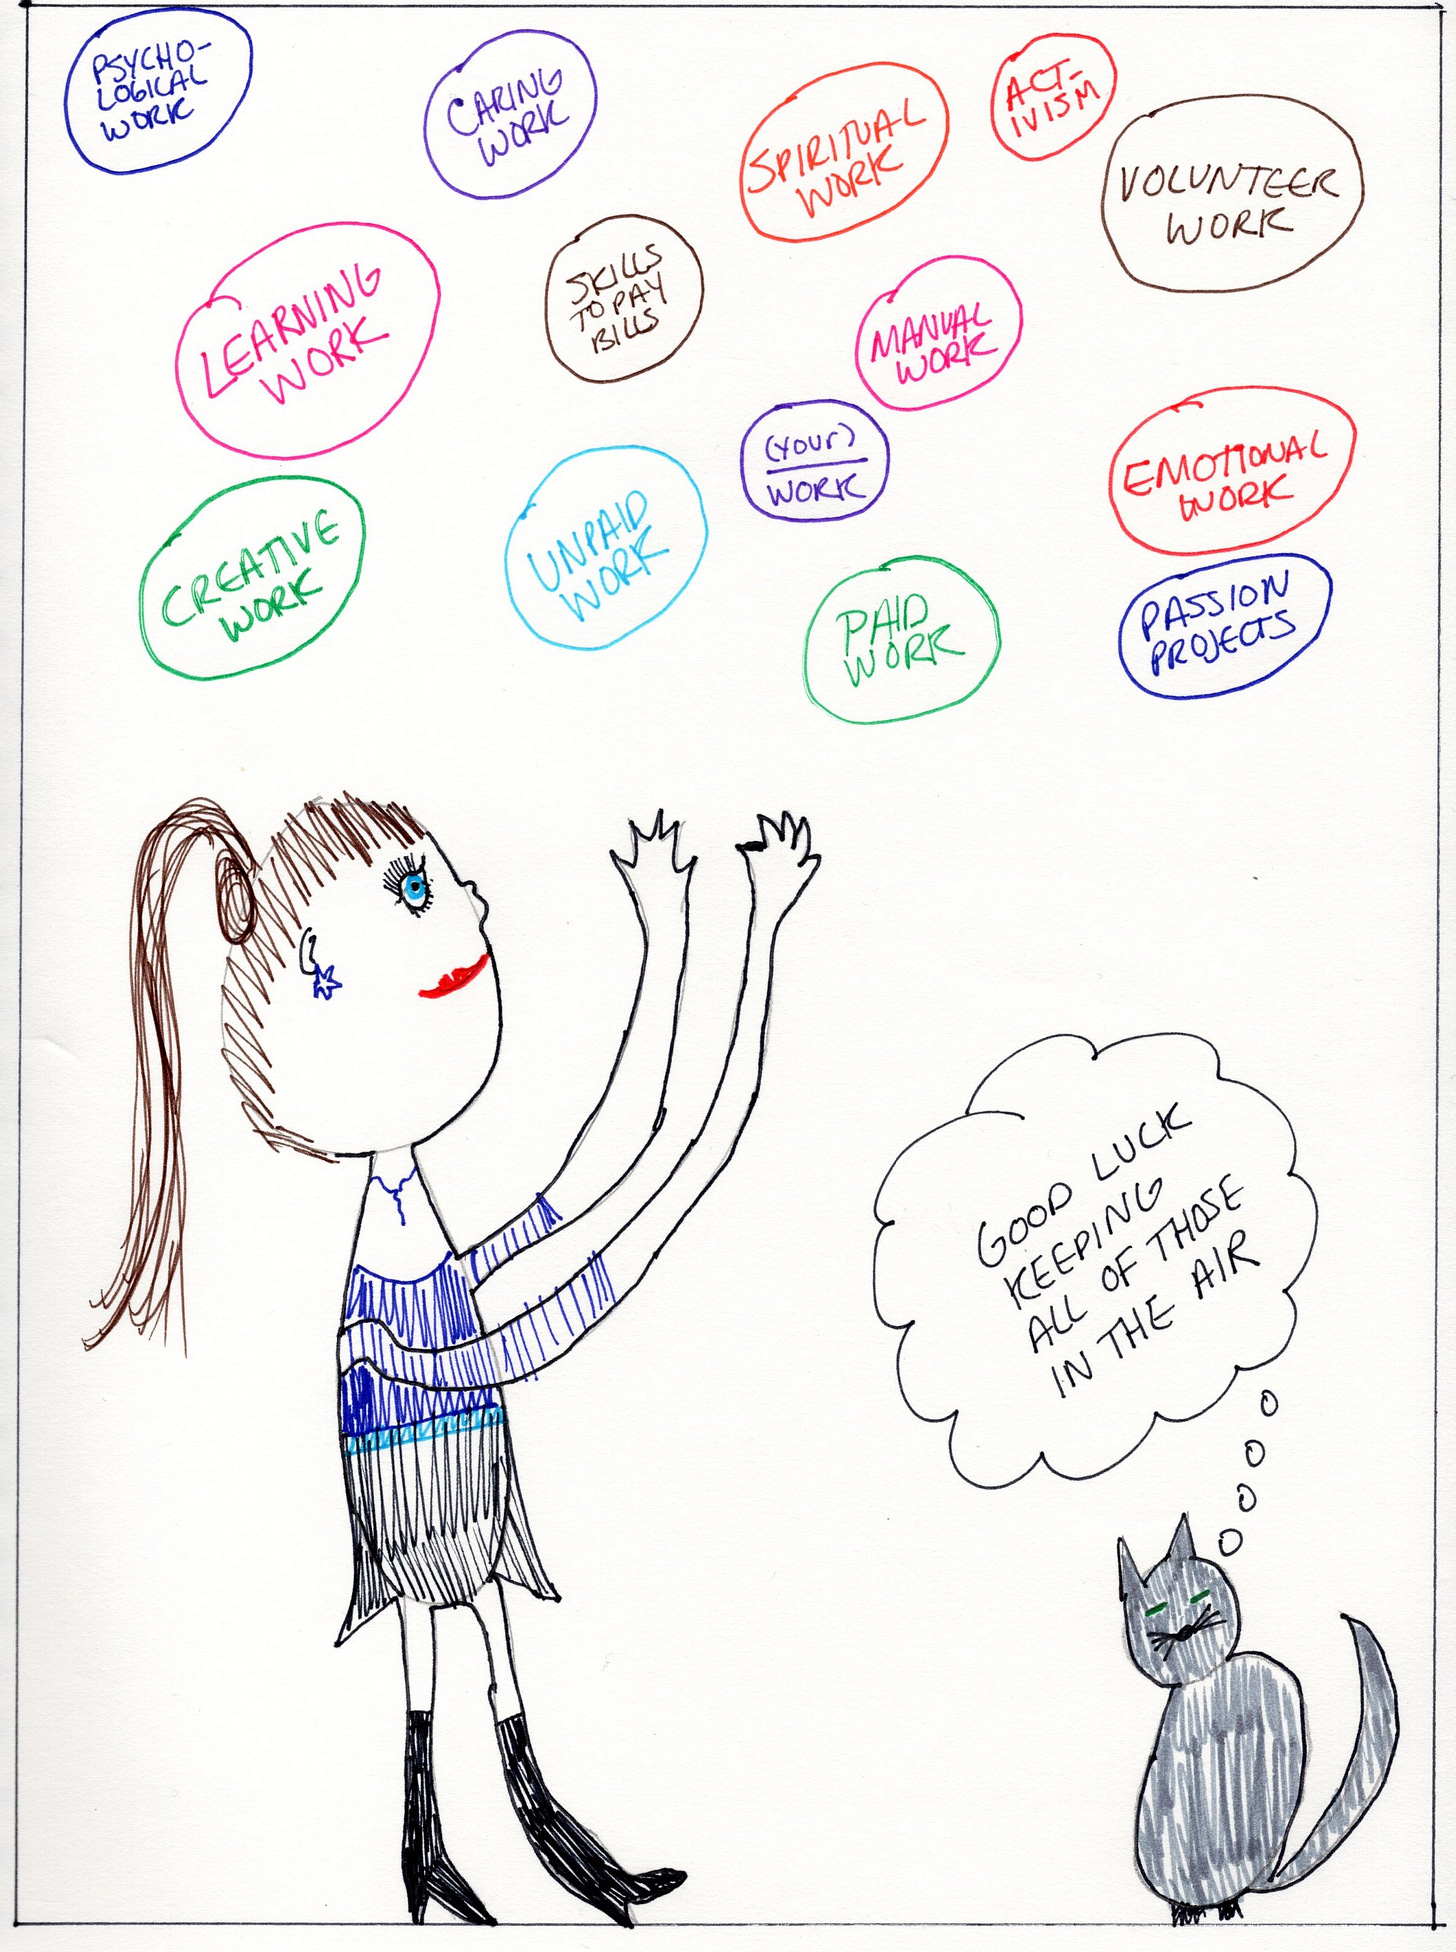 PSYCHO-
LOGICAL
WORK
CARING
WORK
SPIRITUAL
WORK
ACT-
IVISM
VOLUNTEER
WORK
LEARNING
WORK
SKILLS
TO PAY
BILLS
MANUAL
WORK
(YOUR)
WORK
EMOTIONAL
WORK
CREATIVE
WORK
UNPAID
WORK
PAID
WORK
PASSION
PROJECTS
GOOD LUCK
KEEPING
ALL OF THOSE
IN THE AIR